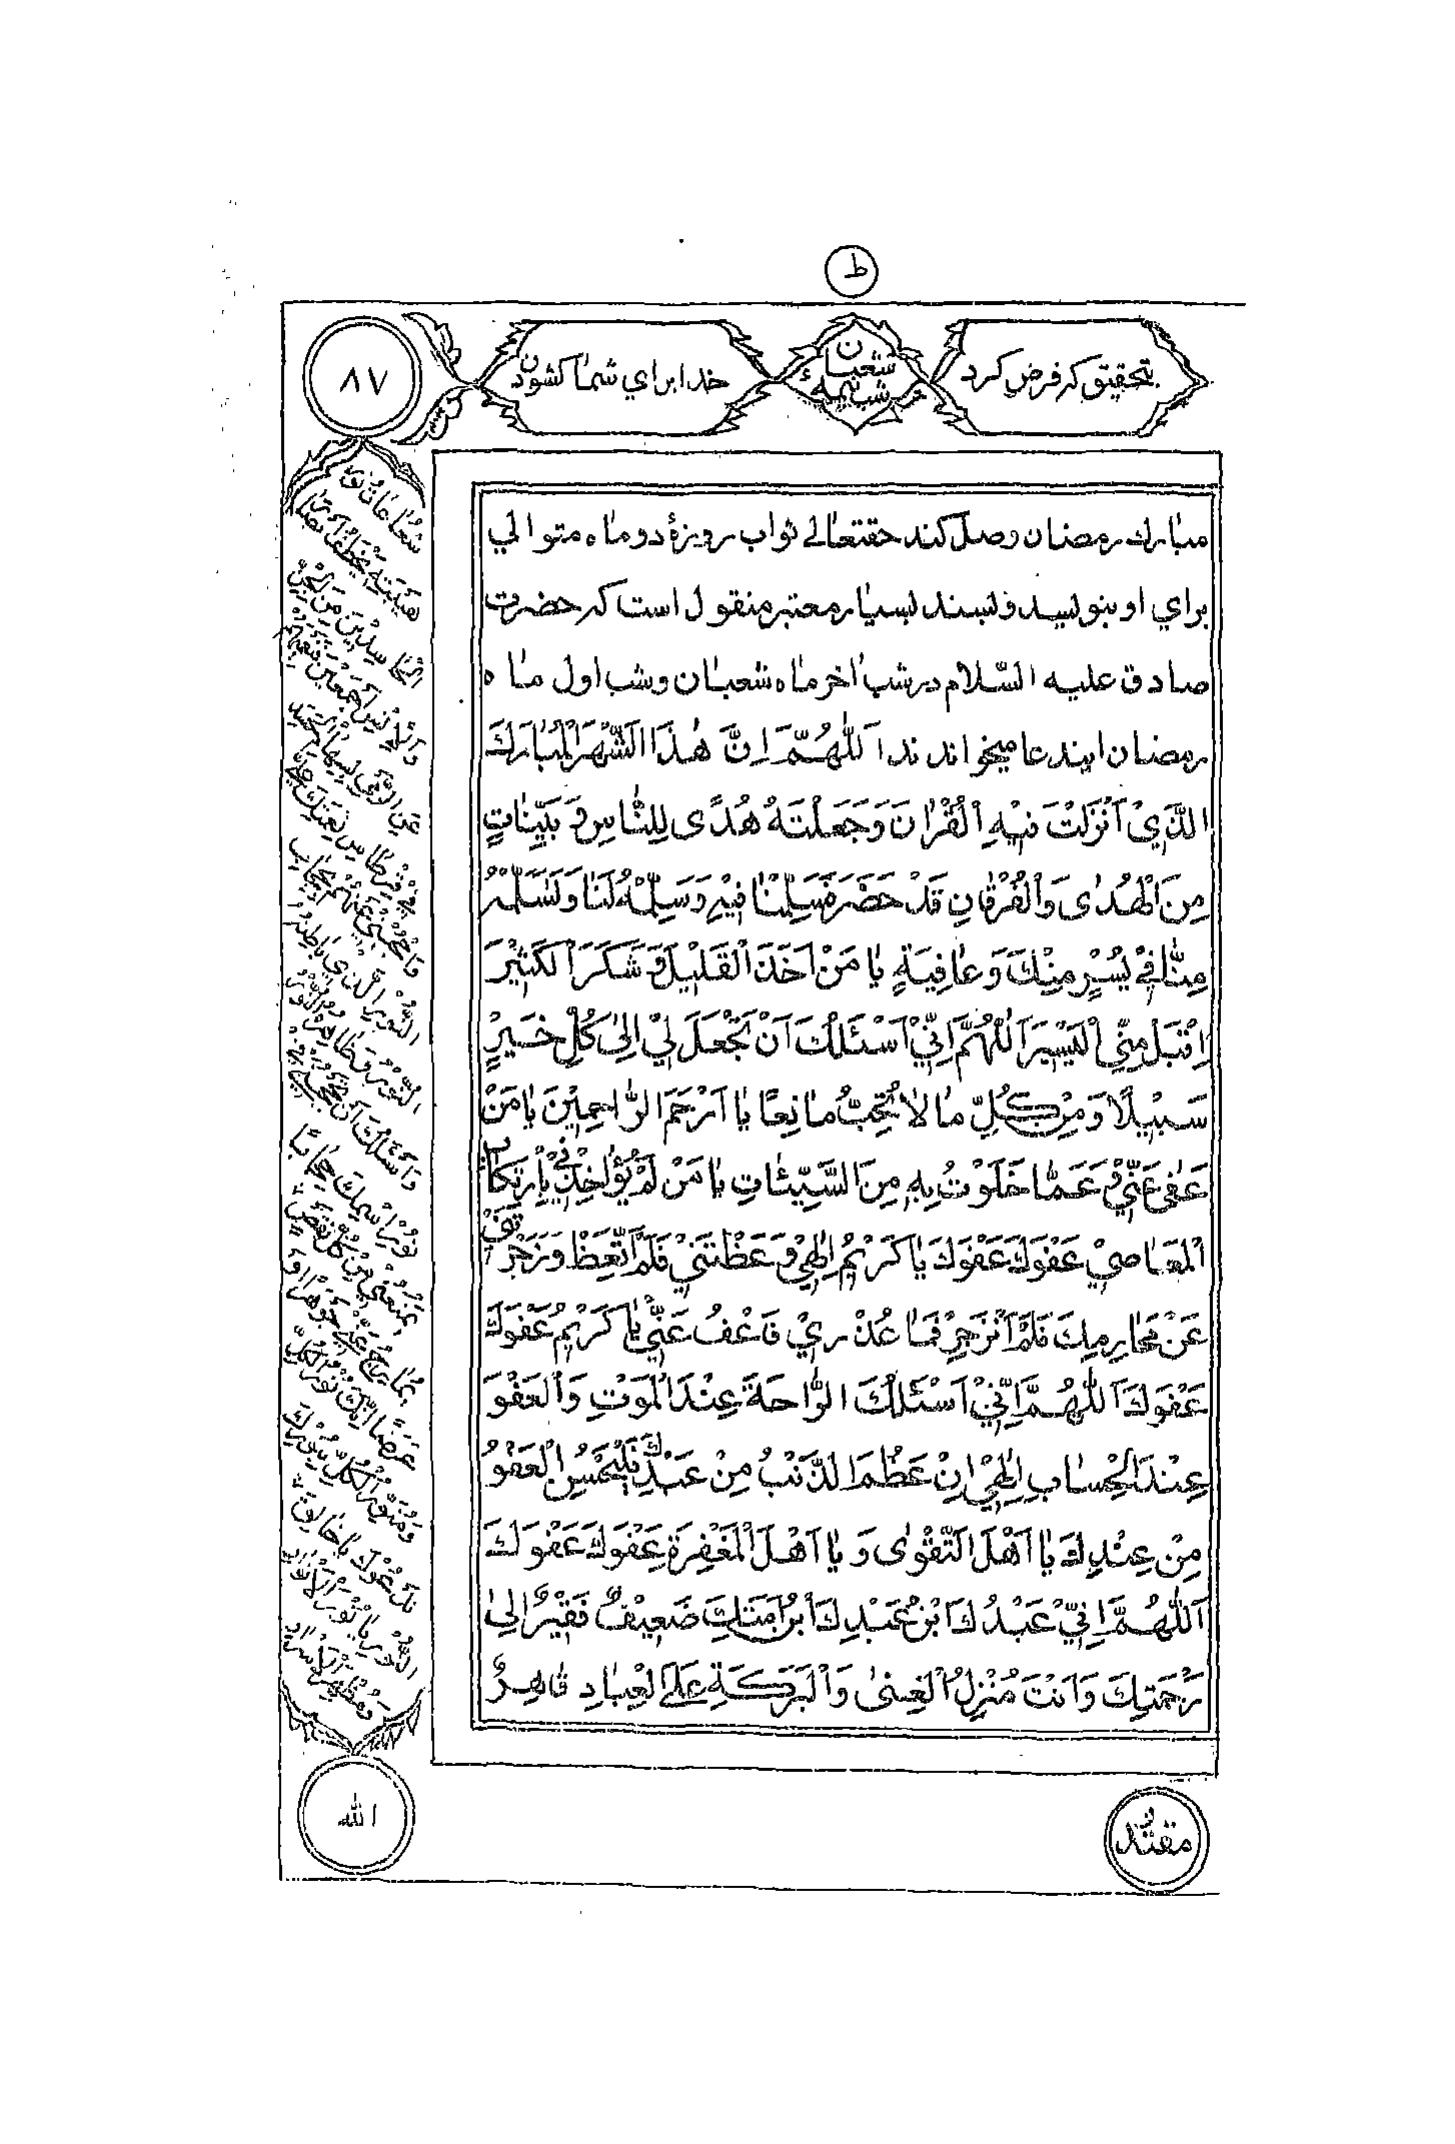 ط
تحقیق که فرض کرد
شعبان
شب نیمهٔ
خدا برای شما کشودن
۸۷
مبارك رمضان وصل كند حقتعالے ثواب روزهٔ دو ماه متوالي
براي او بنويسد و بسند بسيار معتبر منقول است كه حضرت
صادق عليه السّلام در شب اخر ماه شعبان و شب اول ماه
رمضان ايندعا ميخواندند اَللّٰهُمَّ اِنَّ هٰذَا الشَّهْرَ الْمُبٰارَكَ
الَّذِيْ اَنْزَلْتَ فِيْهِ الْقُرْاٰنَ وَجَعَلْتَهُ هُدًى لِلنّٰاسِ وَ بَيِّنٰاتٍ
مِنَ الْهُدٰى وَالْفُرْقٰانِ قَدْ حَضَرَ فَسَلِّمْنٰا فِيْهِ وَسَلِّمْهُ لَنٰا وَتَسَلَّمْهُ
مِنّٰا فِيْ يُسْرٍ مِنْكَ وَعٰافِيَةٍ يٰا مَنْ اَخَذَ الْقَلِيْلَ وَ شَكَرَ الْكَثِيْرَ
اِقْبَلْ مِنِّي الْيَسِيْرَ اَللّٰهُمَّ اِنِّيْ اَسْئَلُكَ اَنْ تَجْعَلَ لِيْ اِلىٰ كُلِّ خَيْرٍ
سَبِيْلًا وَمِنْ كُلِّ مٰا لاٰ تُحِبُّ مٰانِعًا يٰا اَرْحَمَ الرّٰاحِمِيْنَ يٰا مَنْ
عَفٰى عَنِّيْ وَ عَمّٰا خَلَوْتُ بِهِ مِنَ السَّيِّئٰاتِ يٰا مَنْ لَمْ يُؤٰاخِذْنِيْ بِاِرْتِكٰابِ
الْمَعٰاصِيْ عَفْوَكَ عَفْوَكَ عَفْوَكَ يٰا كَرِيْمُ اِلٰهِيْ وَعَظْتَنِيْ فَلَمْ اَتَّعِظْ وَزَجَرْتَنِيْ
عَنْ مَحٰارِمِكَ فَلَمْ اَنْزَجِرْ فَمٰا عُذْرِيْ فَاعْفُ عَنِّيْ يٰا كَرِيْمُ عَفْوَكَ
عَفْوَكَ اَللّٰهُمَّ اِنِّيْ اَسْئَلُكَ الرّٰاحَةَ عِنْدَ الْمَوْتِ وَالْعَفْوَ
عِنْدَ الْحِسٰابِ اِلٰهِيْ اِنْ عَظُمَ الذَّنْبُ مِنْ عَبْدِكَ فَلْيَحْسُنِ الْعَفْوُ
مِنْ عِنْدِكَ يٰا اَهْلَ التَّقْوٰى وَ يٰا اَهْلَ الْمَغْفِرَةِ عَفْوَكَ عَفْوَكَ
اَللّٰهُمَّ اِنِّيْ عَبْدُكَ ابْنُ عَبْدِكَ ابْنُ اَمَتِكَ ضَعِيْفٌ فَقِيْرٌ اِلىٰ
رَحْمَتِكَ وَاَنْتَ مُنْزِلُ الْغِنىٰ وَالْبَرَكَةِ عَلَى الْعِبٰادِ قٰاهِرٌ
مقتدر
شُعٰاعٰاتُ نُوْرِ
هَيْبَتِهِ يَخْطَفُ اَبْصٰارَ
الْحٰاسِدِيْنَ مِنَ الْجِنِّ
وَالْاِنْسِ اَجْمَعِيْنَ
وَاَسْئَلُكَ اَنْ تَحْجُبَنِيْ
نُوْرُ اسْمِكَ حِجٰابًا
يَمْنَعُنِيْ مِنْ كُلِّ نَقْصٍ
يُمٰازِجُ مِنِّيْ جَوْهَرًا اَوْ
عَرَضًا اِنَّكَ نُوْرُ الْكُلِّ
وَمُنَوِّرُ الْكُلِّ بِنُوْرِكَ
الله